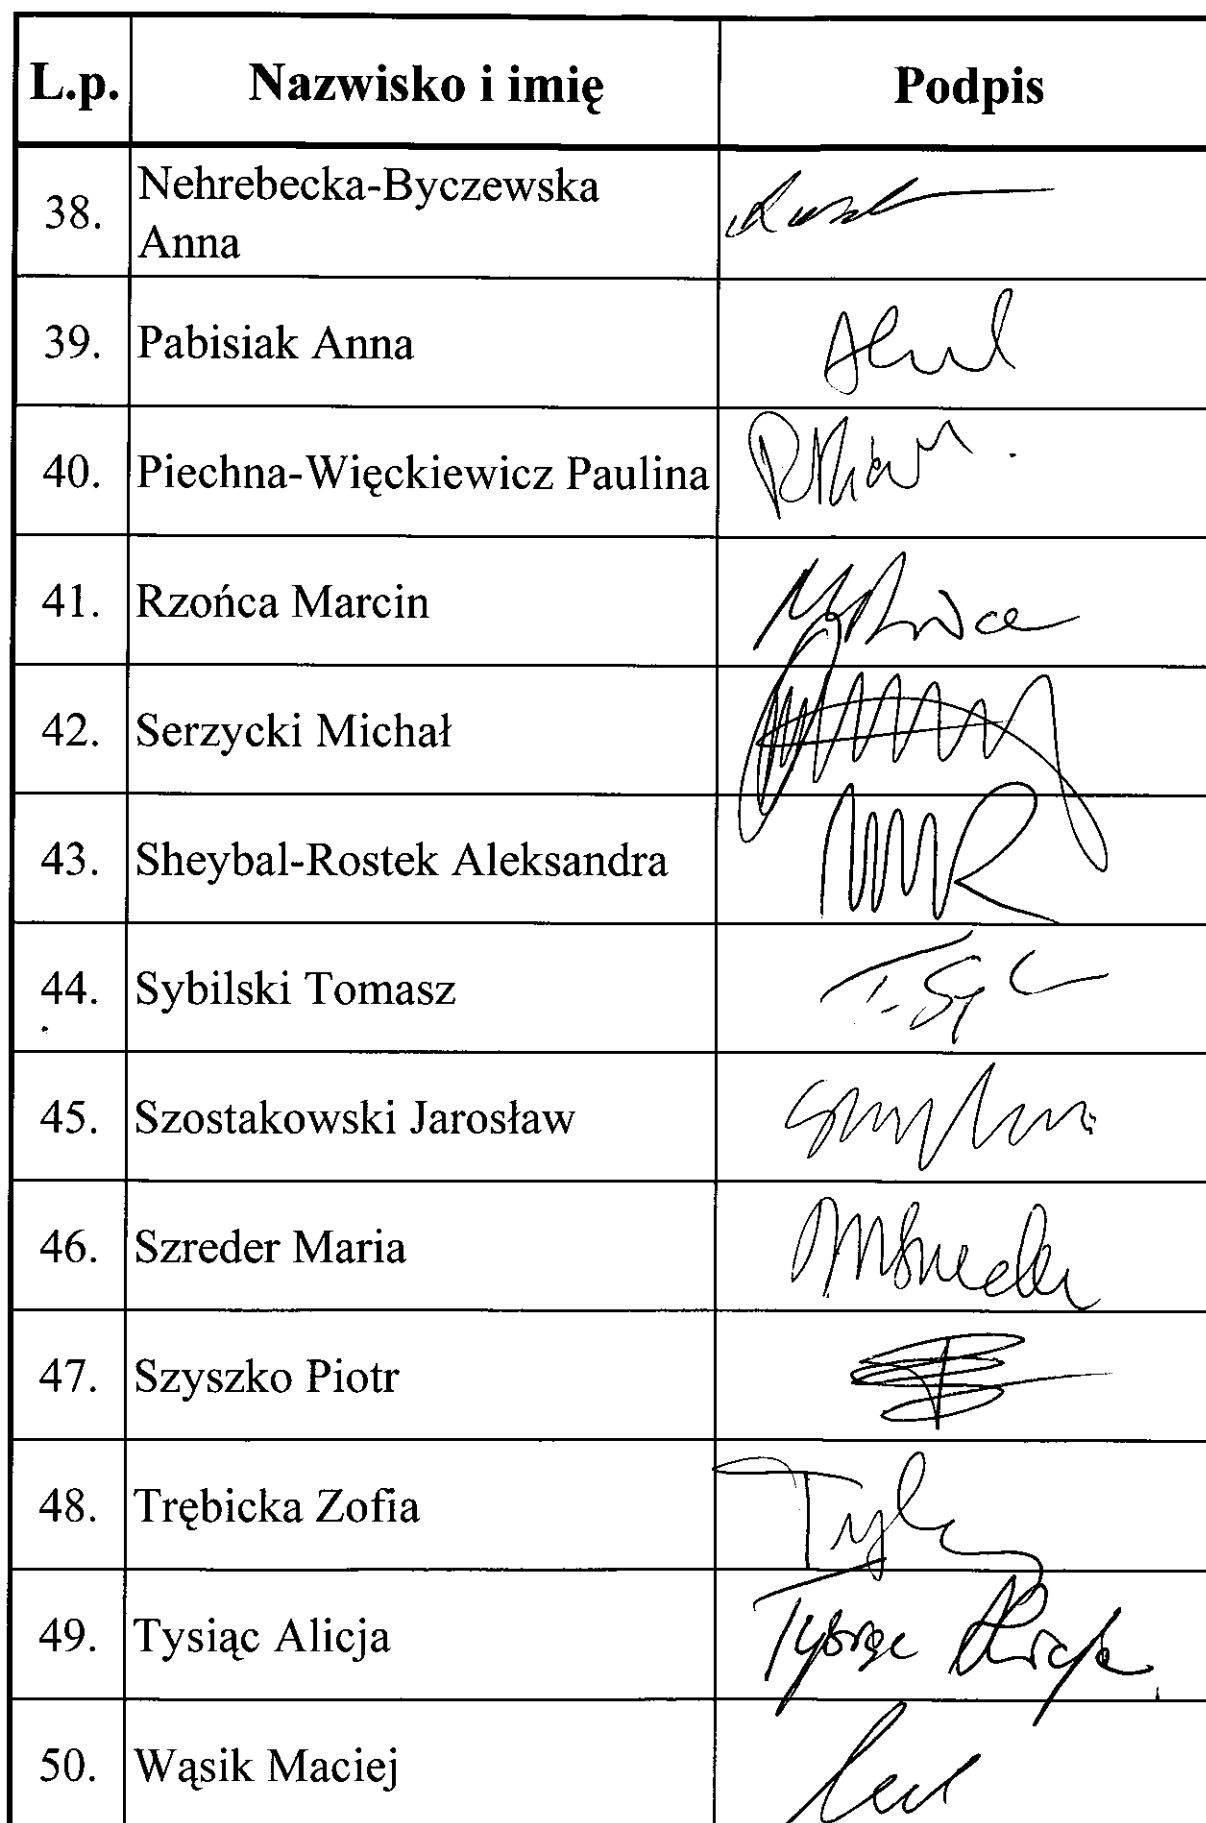 L.p. Nazwisko i imię Podpis
38. Nehrebecka-Byczewska
Anna
39. Pabisiak Anna
40. Piechna-Więckiewicz Paulina
41. Rzońca Marcin
42. Serzycki Michał
43. Sheybal-Rostek Aleksandra
44. Sybilski Tomasz
45. Szostakowski Jarosław
46. Szreder Maria
47. Szyszko Piotr
48. Trębicka Zofia
49. Tysiąc Alicja Tysiąc Alicja
50. Wąsik Maciej